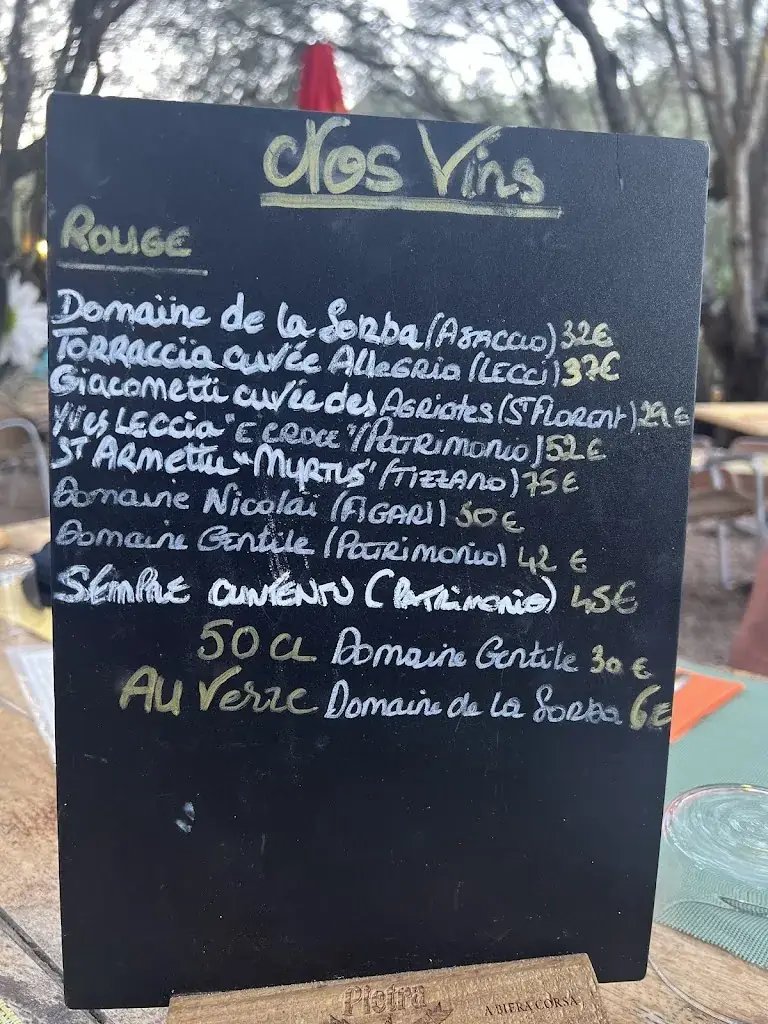 Nos Vins
ROUGE
Domaine de la Sorba (AJACCIO) 32€
TORRACCIA cuvée Allegria (LECCI) 37€
Giacometti cuvée des AGRIATES (ST FLORENT) 29€
YVES LECCIA "E CROCE" (PATRIMONIO) 52€
ST ARMETTU "MYRTUS" (TIZZANO) 75€
Domaine Nicolaï (FIGARI) 30€
Domaine Gentile (PATRIMONIO) 42 €
SEMPRE CUNTENTU (PATRIMONIO) 45€
50 CL Domaine Gentile 30 €
AU Verre Domaine de la Sorba 6€
Pietra
A BIERA CORSA